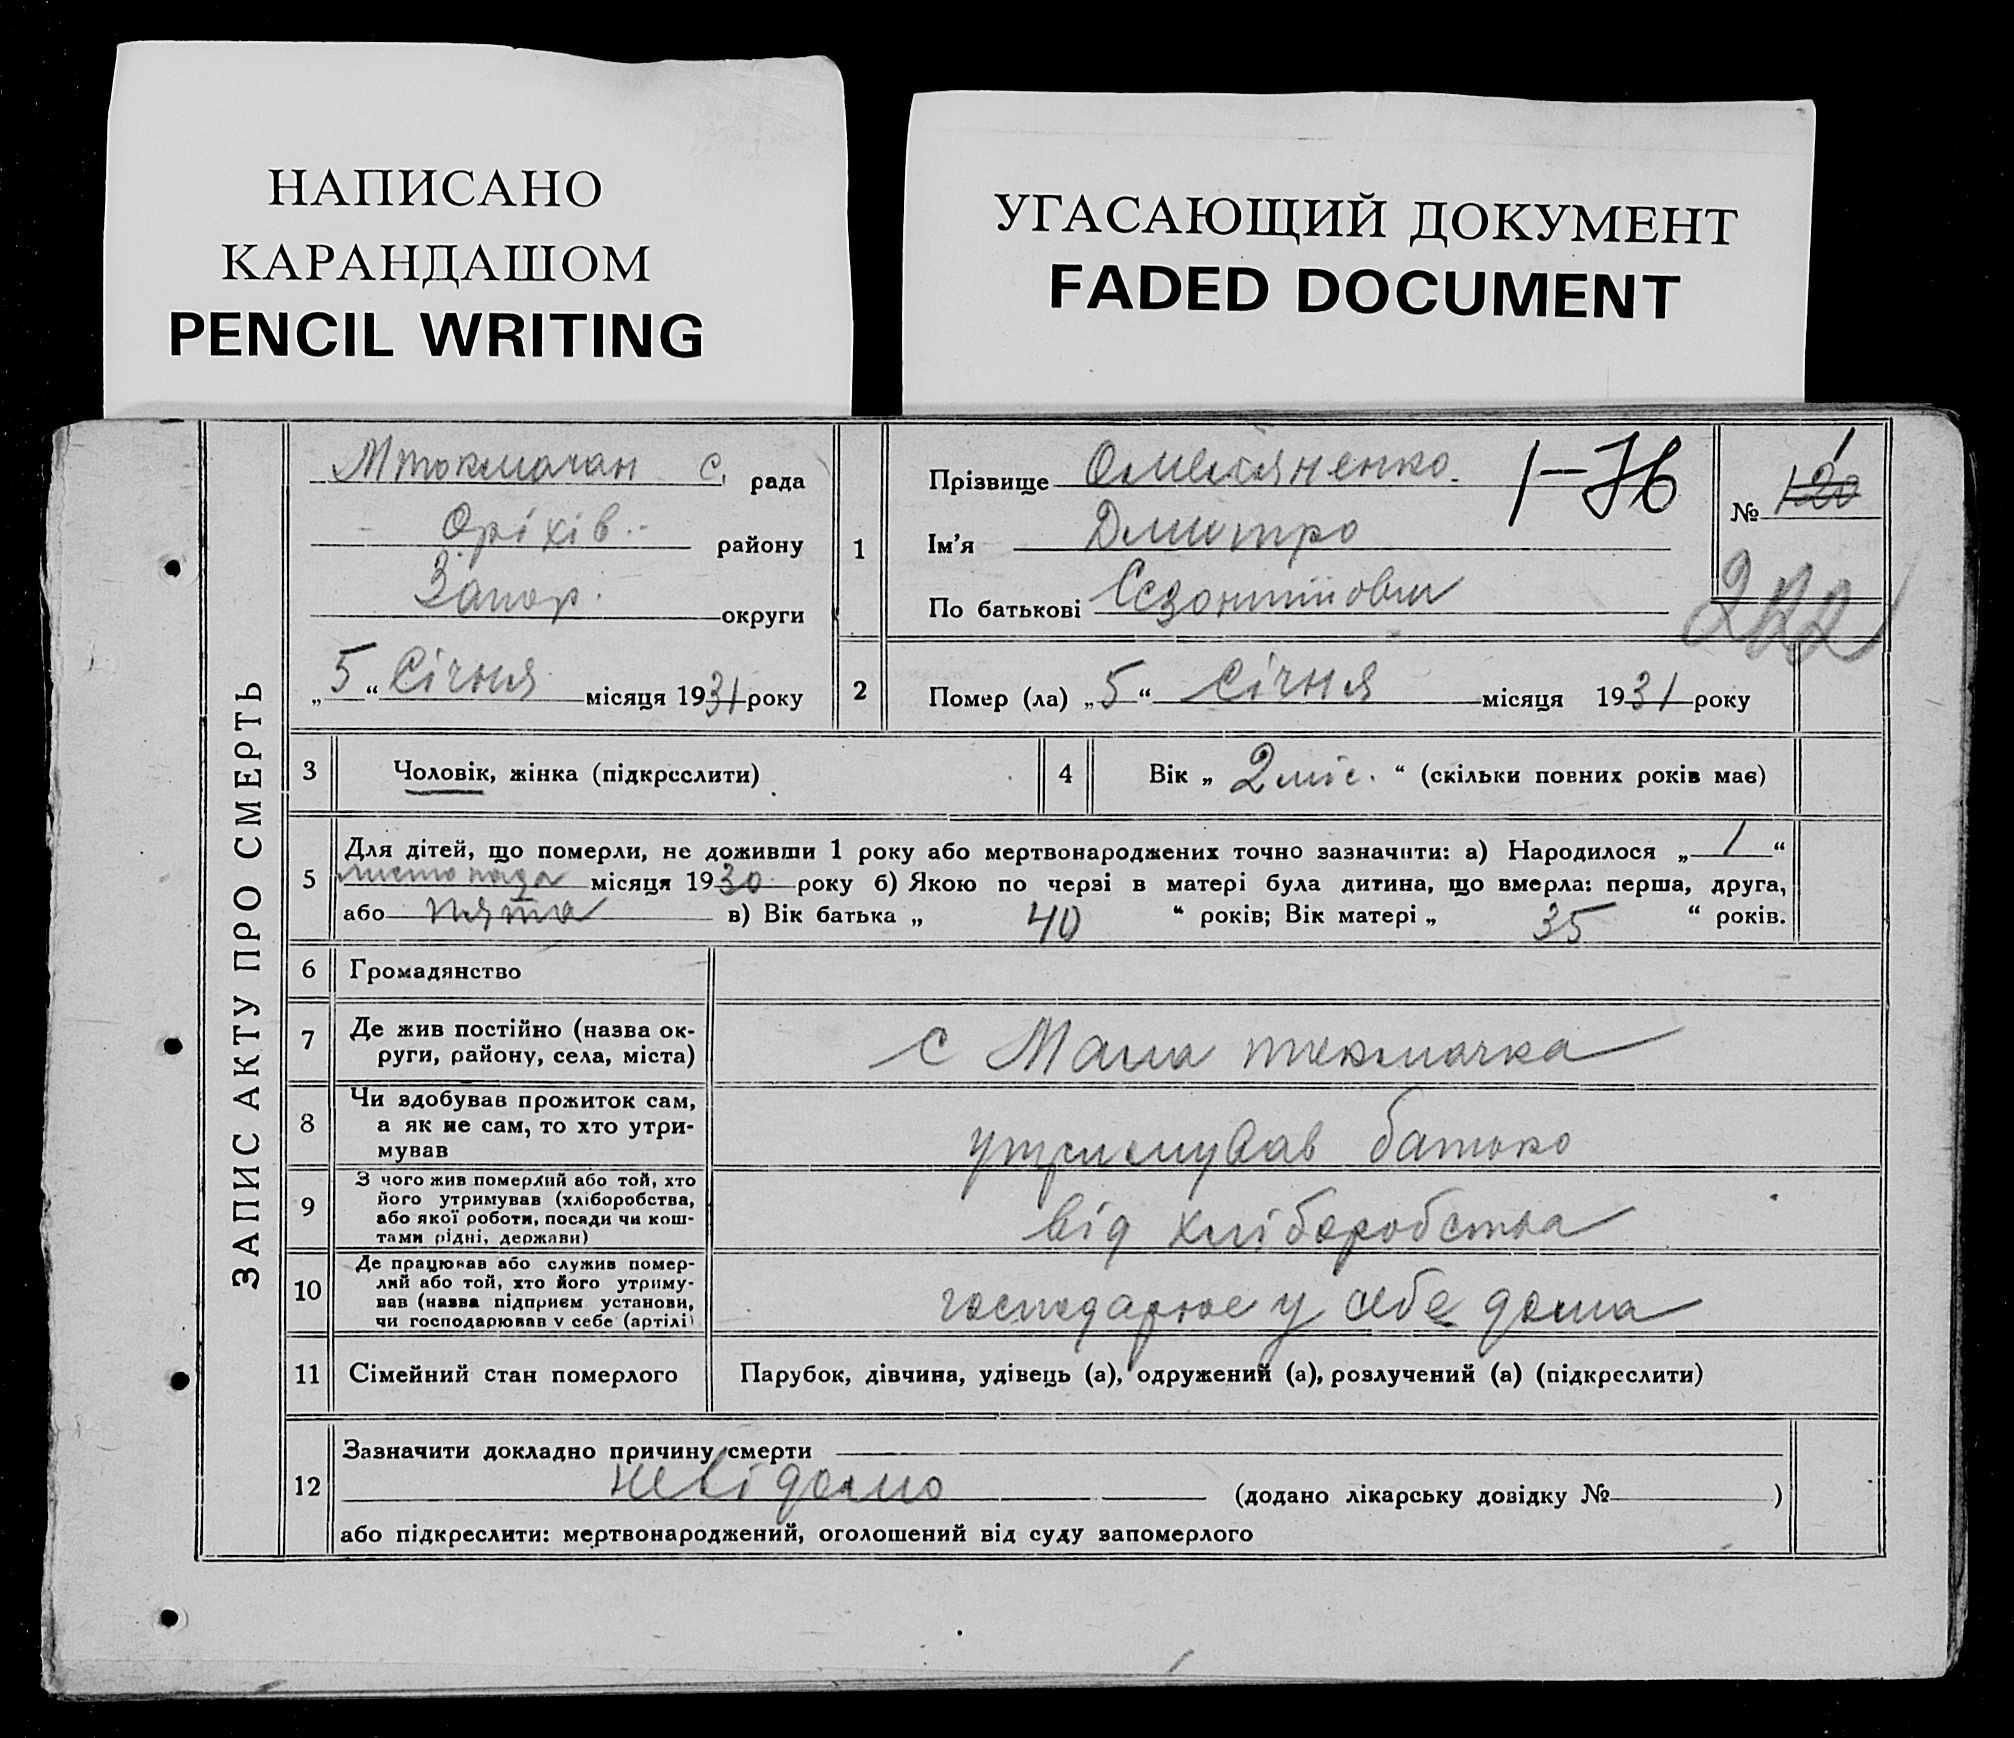 НАПИСАНО
КАРАНДАШОМ
PENCIL WRITING
УГАСАЮЩИЙ ДОКУМЕНТ
FADED DOCUMENT
ЗАПИС АКТУ ПРО СМЕРТЬ
Мтокмачан с. рада
Оріхів району
Запор. округи
„5“ Січня місяця 1931 року
1
Прізвище Омеляненко
1–Ж
Ім'я Дмитро
По батькові
№ 120
1
222
2 Помер (ла) „5“ Січня місяця 1931 року
3 Чоловік, жінка (підкреслити)
4 Вік „2 міс.“ (скільки повних років має)
5 Для дітей, що померли, не доживши 1 року або мертвонароджених точно зазначити: а) Народилося „1“
листопада місяця 1930 року б) Якою по черзі в матері була дитина, що вмерла: перша, друга,
або пята в) Вік батька „40“ років; Вік матері „35“ років.
6 Громадянство
7 Де жив постійно (назва ок-
руги, району, села, міста)
с Мала токмачка
8 Чи здобував прожиток сам,
а як не сам, то хто утри-
мував
утримував батько
9 З чого жив померлий або той, хто
його утримував (хліборобства,
або якої роботи, посади чи кош-
тами рідні, держави)
від хліборобства
10 Де працював або служив помер-
лий або той, хто його утриму-
вав (назва підприєм установи,
чи господарював у себе (артілі)
господарює у себе дома
11 Сімейний стан померлого Парубок, дівчина, удівець (а), одружений (а), розлучений (а) (підкреслити)
12 Зазначити докладно причину смерти
невідомо (додано лікарську довідку № )
або підкреслити: мертвонароджений, оголошений від суду запомерлого